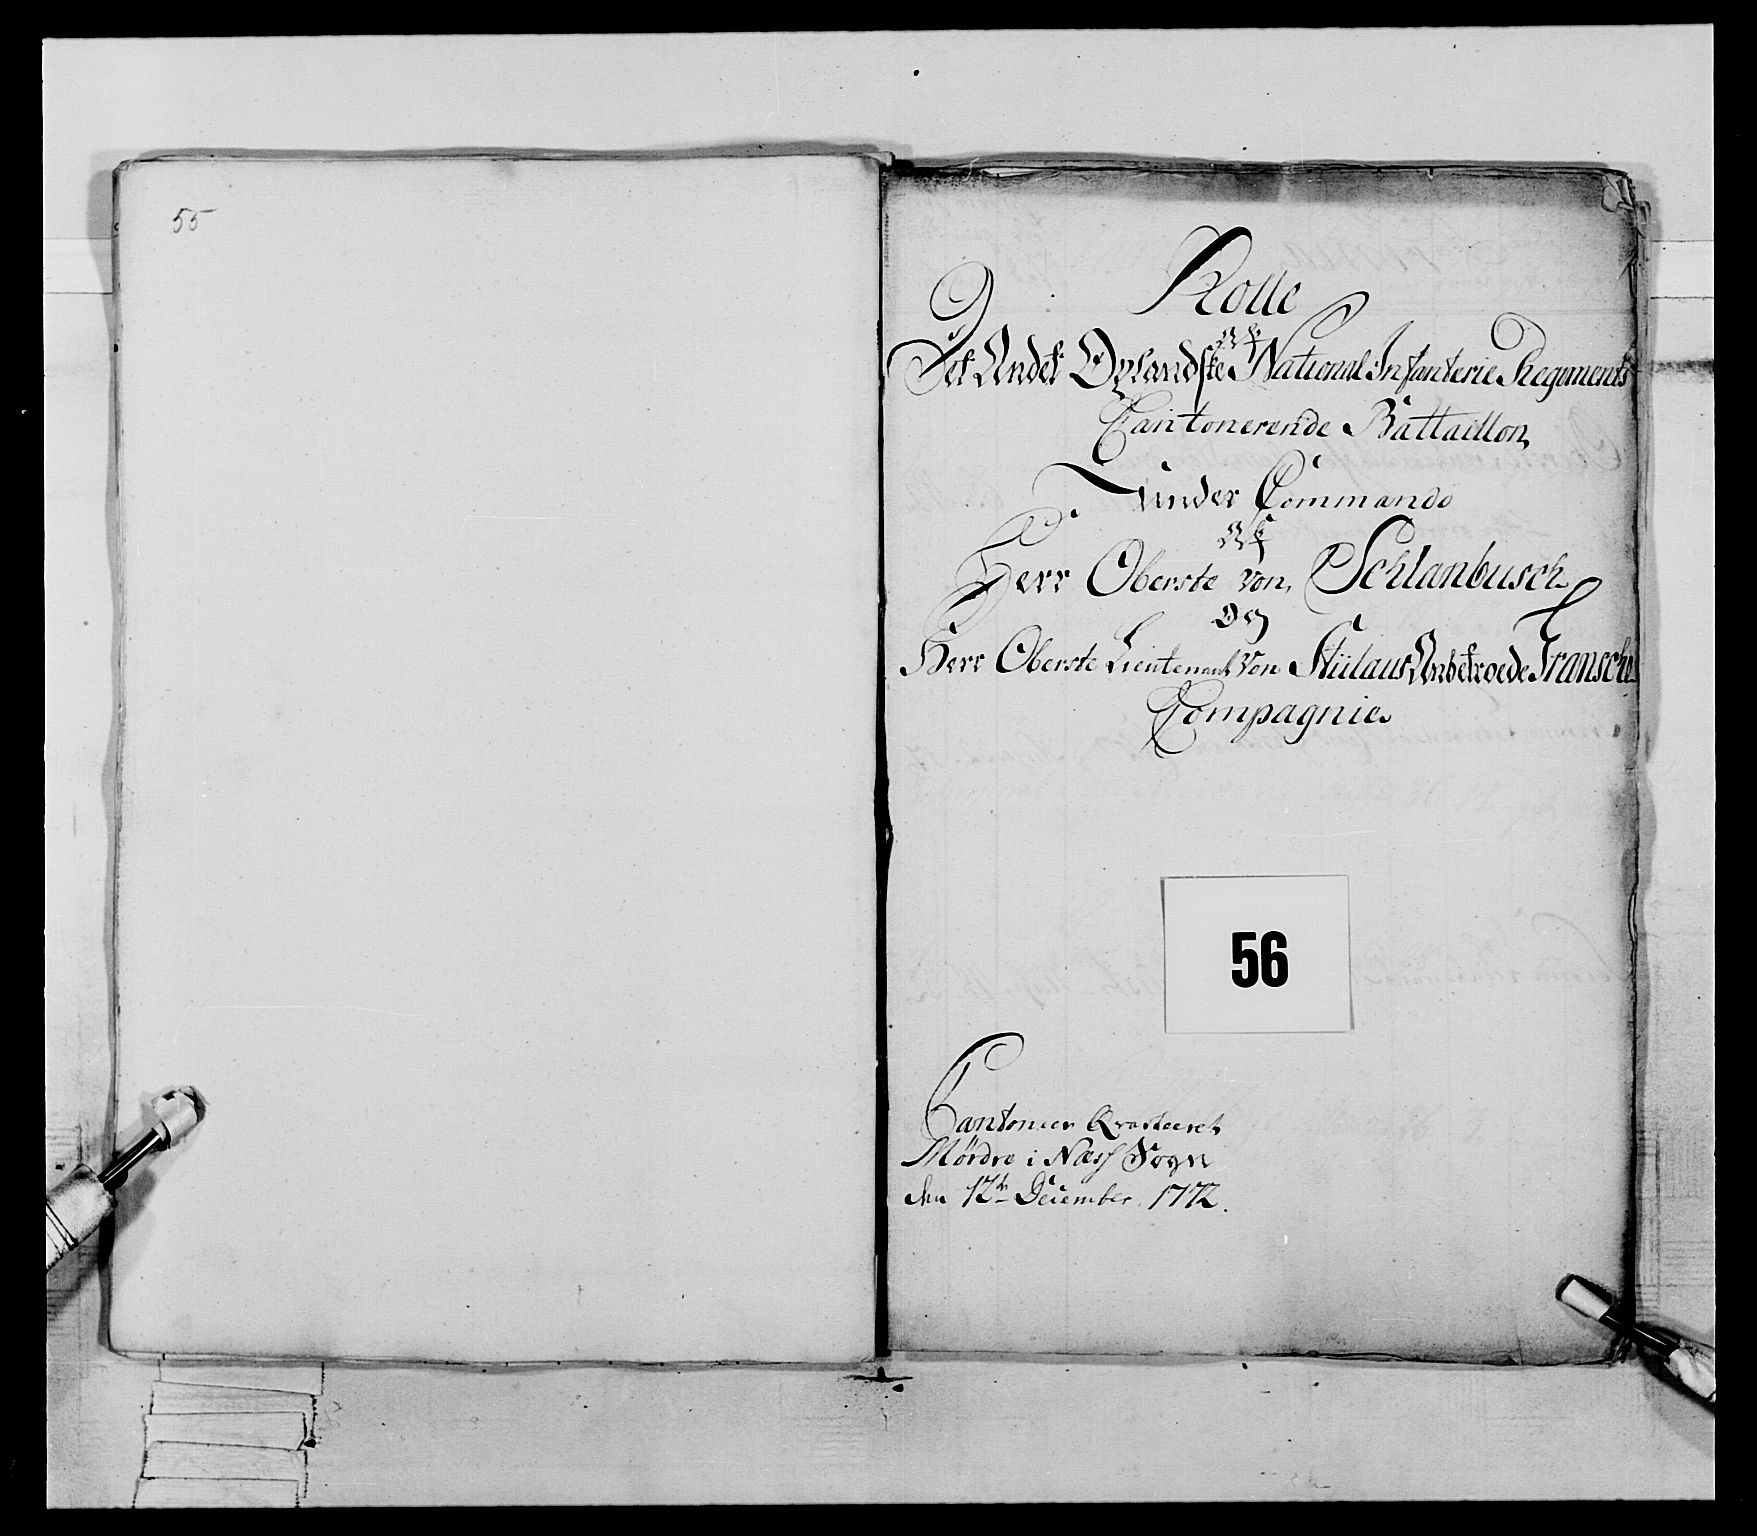 55
Rolle
Af
Det Andet Oplandske National Infanterie Regements
Cantonerende Battaillon
under Commando
Af
Herr Oberste von Schlanbusch
Og
Herr Oberste Lieutenant von Stülaus Anbetroede Fransche
Compagnie
56
Cantoneer Qvarteeret
Mördre i Næss Sogn
den 12te December 1772.